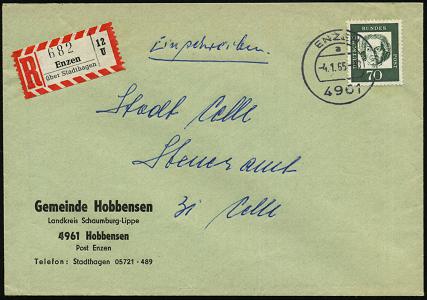 R
682
Enzen
über Stadthagen
12
U
Einschreiben.
ENZEN
a
-4.1.65
4961
DEUTSCHE
BUNDES
POST
70
Stadt Celle
Steueramt
31 Celle
Gemeinde Hobbensen
Landkreis Schaumburg-Lippe
4961 Hobbensen
Post Enzen
Telefon: Stadthagen 05721 - 489